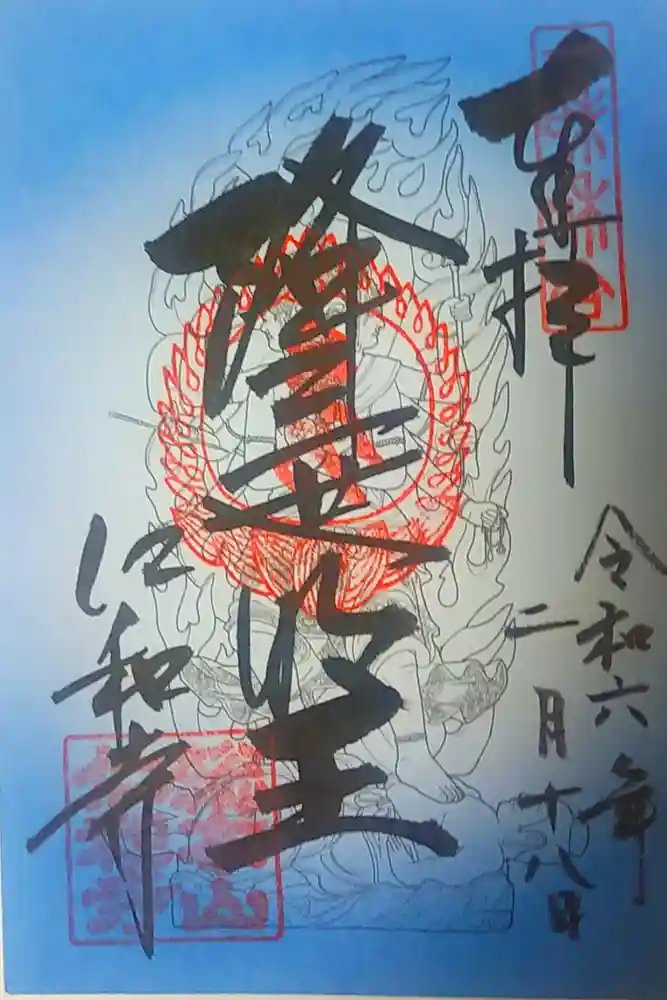 奉拝
降三世明王
仁和寺
令和六年
二月十八日